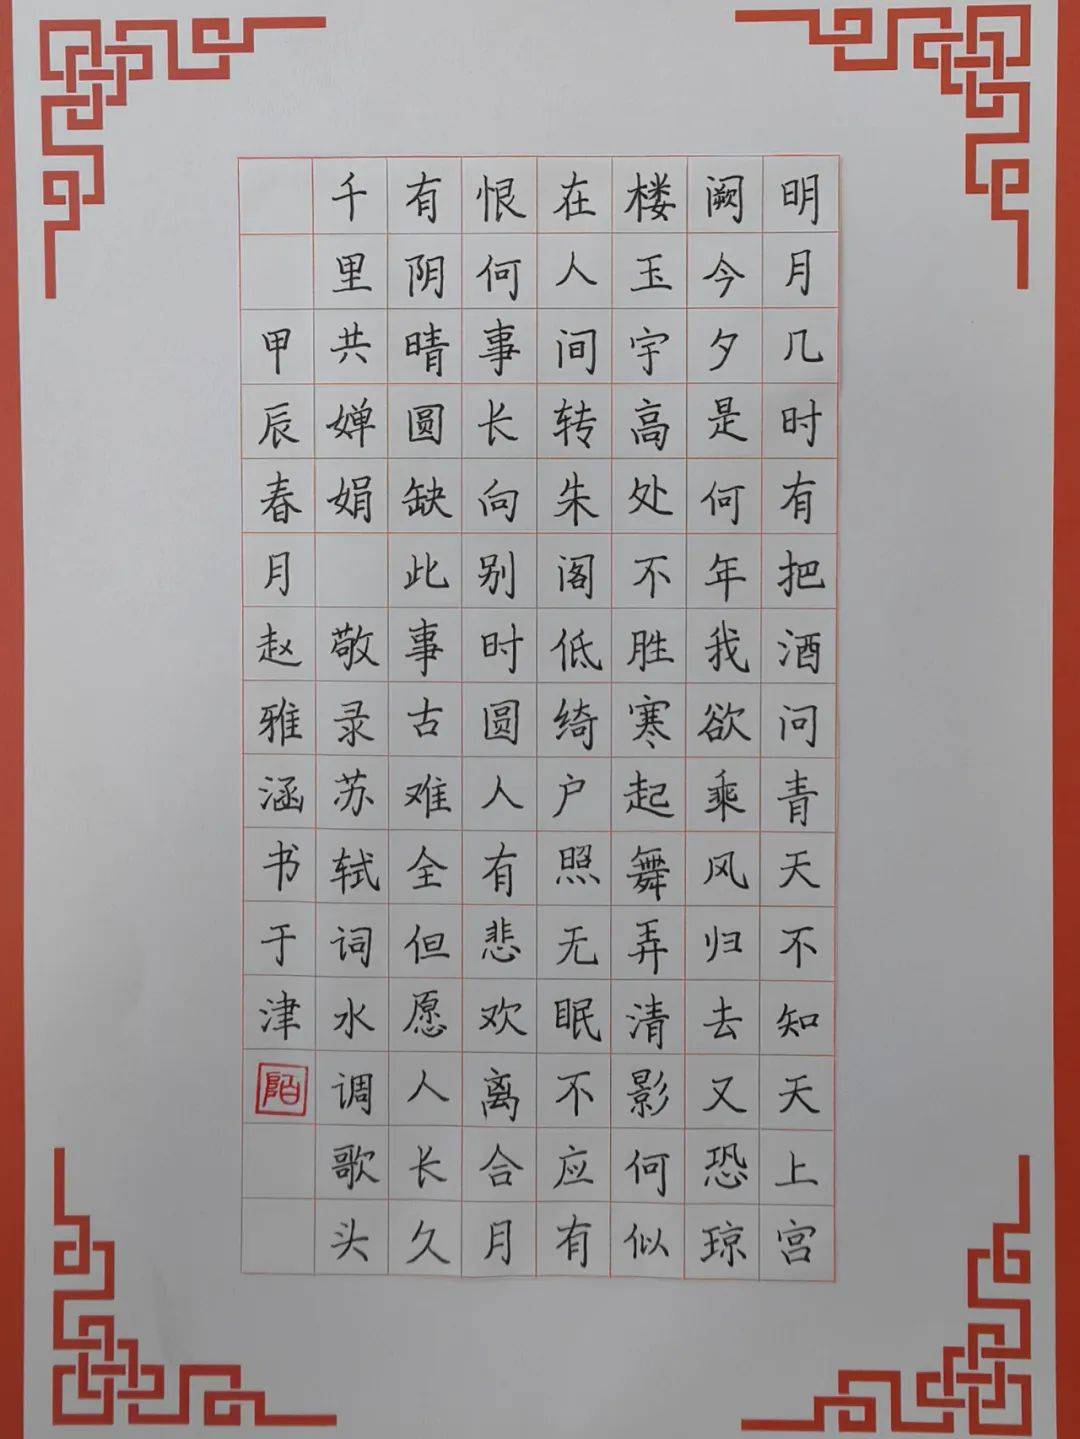 明月几时有把酒问青天不知天上宫
阙今夕是何年我欲乘风归去又恐琼
楼玉宇高处不胜寒起舞弄清影何似
在人间转朱阁低绮户照无眠不应有
恨何事长向别时圆人有悲欢离合月
有阴晴圆缺此事古难全但愿人长久
千里共婵娟 敬录苏轼词水调歌头
甲辰春月赵雅涵书于津